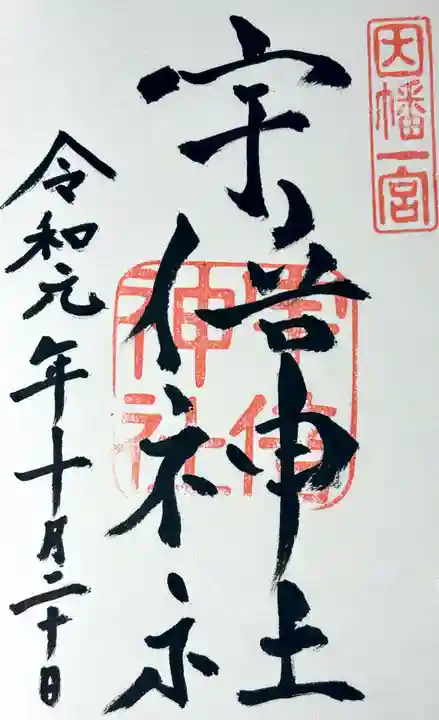 因幡一宮
宇倍神社
宇倍神社
令和元年十月二十日